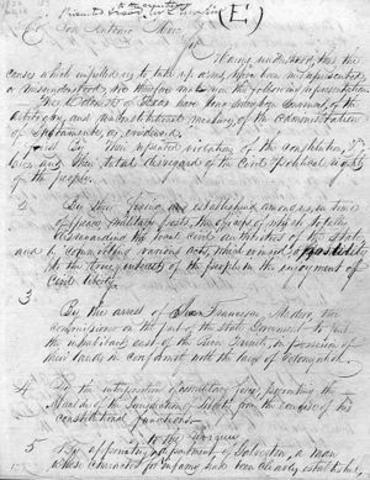 to the
(E)
To Don Antonio
Sir
Having understood, that the
causes which impelled us to take up arms, have been misrepresented,
or misunderstood, we therefore make you the following representation.
The Colonists of Texas have long since been
and unconstitutional measures, of the administration
of Bustamante, as evinced.
First By Their repeated violation of the constitution
laws and Their total disregard of the Civil & Political rights
of the people.
2 By their fixing and establishing among us, in time
of peace, military posts, the officers of which totally
disregarding the local civil authorities of the State
and by committing various acts, opposite
to the true interest of the people in the enjoyment of
Civil liberty.
3
By the arrest of Juan Francisco Madero, the
commissioner on the part of the State Government to put
the inhabitants east of the River Trinity, in possession of
their lands in conformity with the laws of Colonization.
4 By the interposition of a military force, preventing the
Alcalde of the Jurisdiction of Liberty from the exercise of his
constitutional functions.
5 By appointing to the
department of Galveston, a man
whose character for infamy had been clearly established,